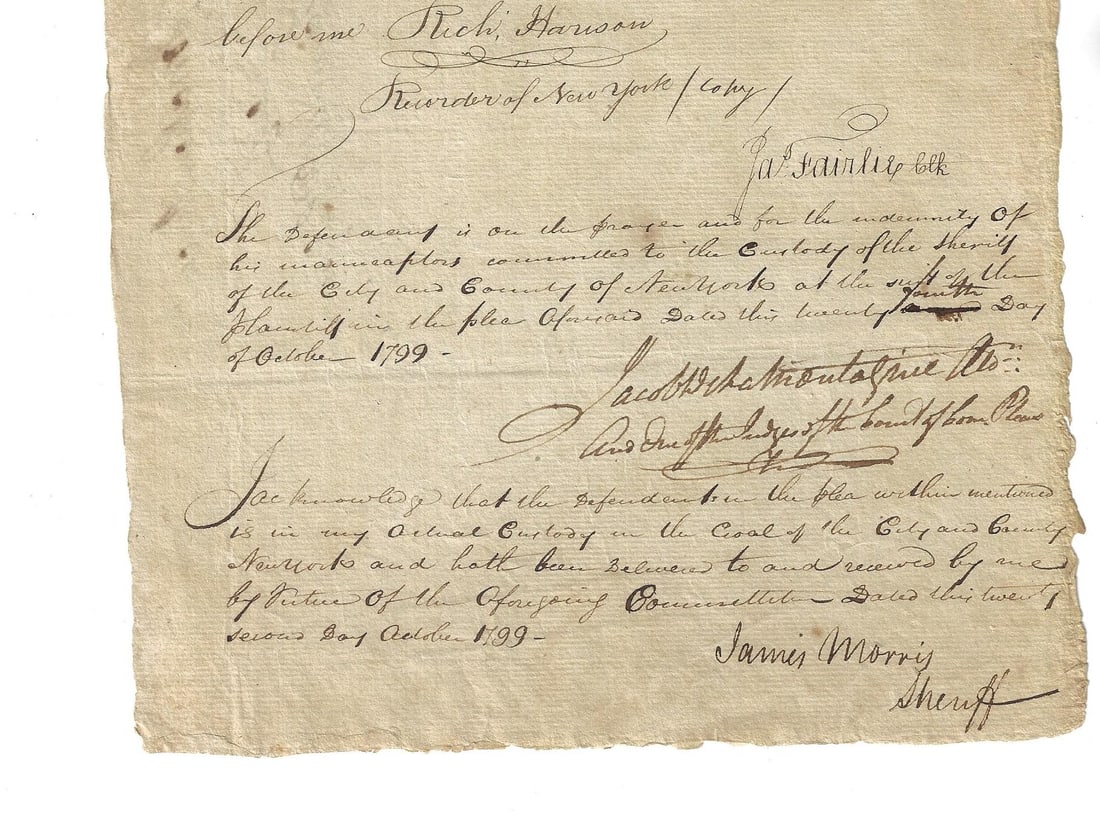 before me Rich, Harison
Recorder of New York / Copy /
Jas. Fairlie Clk
The Defendant is on the prayer and for the indemnity of
his manucaptors committed to the Custody of the Sheriff
of the City and County of New York at the suit of the
Plaintiff in the plea aforesaid Dated this twenty fourth Day
of October 1799 -
Jacob De La Montagnie
And One of the Judges of the Court of Com. Pleas
I acknowledge that the Defendent in the plea within mentioned
is in my actual Custody in the Goal of the City and County
New York and hath been Delivered to and received by me
by Virtue of the aforegoing Dated this twenty
second Day October 1799 -
James Morris
Sheriff